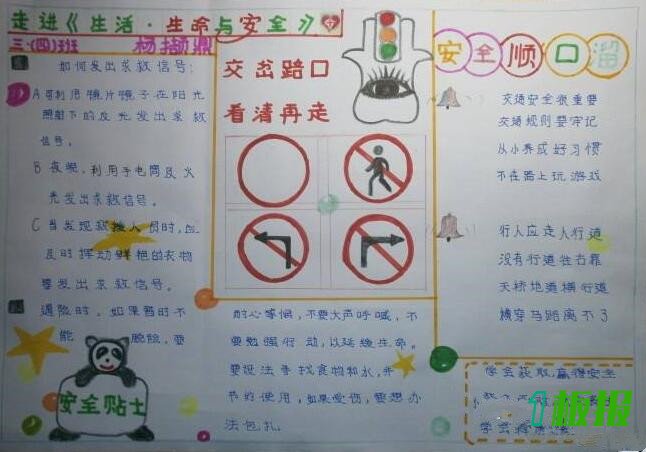 走进《生活·生命与安全》
三·(四)班
杨撷鼎
如何发出求救信号:
A 可利用镜片镜子在阳光
照射下的反光发出求救
信号。
B 夜晚,利用手电筒及火
光发出求救信号。
C 当发现救援人员时,应
及时挥动鲜艳的衣物
等发出求救信号。
遇险时,如果暂时不
能 脱险,要
安全贴士
交岔路口
看清再走
耐心等候,不要大声呼喊,不
要勉强行动,以延续生命。
要设法寻找食物和水,并
节约使用,如果受伤,要想办
法包扎。
安全顺口溜
交通安全很重要
交通规则要牢记
从小养成好习惯
不在路上玩游戏
行人应走人行道
没有行道往右靠
天桥地道横行道
横穿马路离不了
学会获取,赢得安全
学会
板报